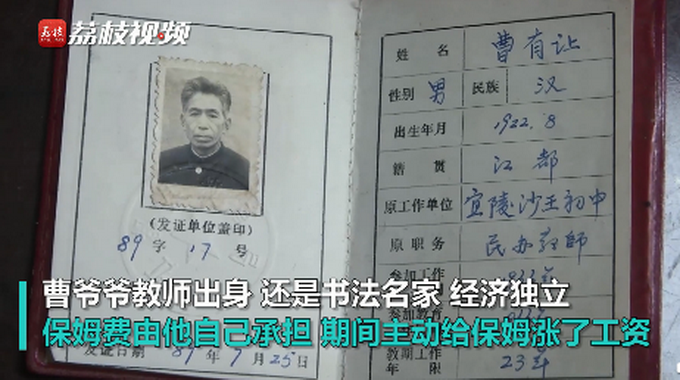 荔枝
荔枝视频
(发证单位盖印)
89 字 17 号
发证日期 89 年 9月25日
姓名 曹有让
性别 男 民族 汉
出生年月 1922.8
籍贯 江都
原工作单位 宜陵沙王初中
原职务 民办教师
参加工作
参加教育
教龄工作
年限 23年
曹爷爷教师出身 还是书法名家 经济独立
保姆费由他自己承担 期间主动给保姆涨了工资